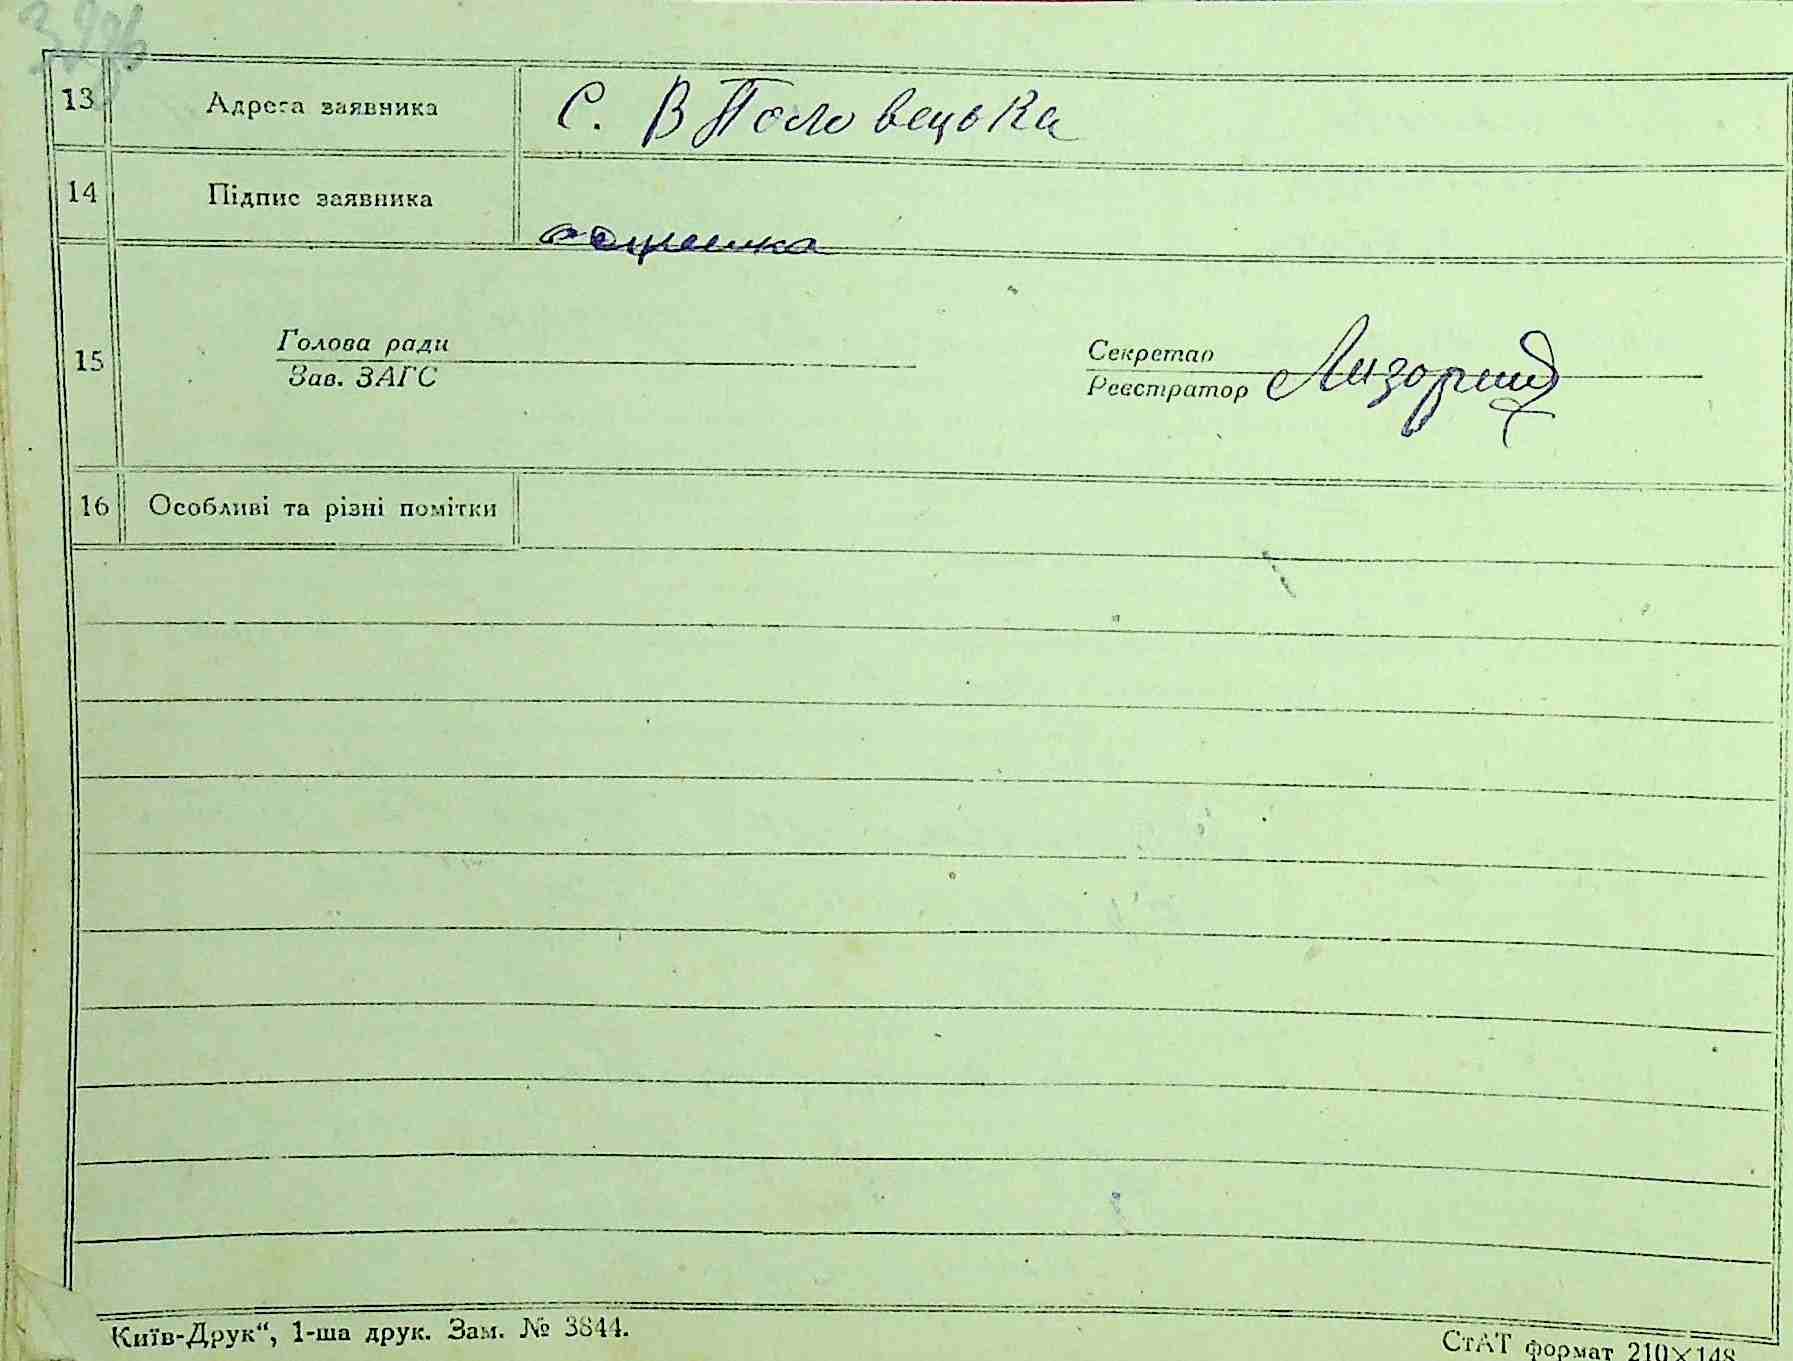 13 Адреса заявника С. В Половецька
14 Підпис заявника
15 Голова ради
Зав. ЗАГС
Секретар
Реєстратор
16 Особливі та різні помітки
Київ-Друк“, 1-ша друк. Зам. № 3844.
СтАТ формат 210×148